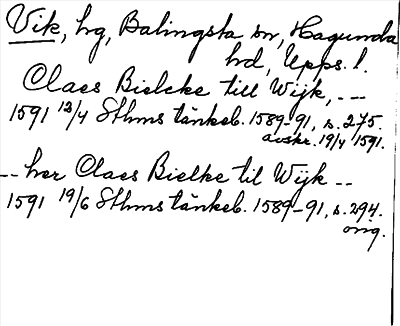 Vik, hg, Balingsta sn, Hagunda
hd, Upps. l.
Claes Bielcke till Wijk, ---
1591 12/4 Sthms tänkeb. 1589-91, s. 275.
avskr. 19/4 1591.
-- her Claes Bielke til Wijk --
1591 19/6 Sthms tänkeb. 1589-91, s. 294.
orig.